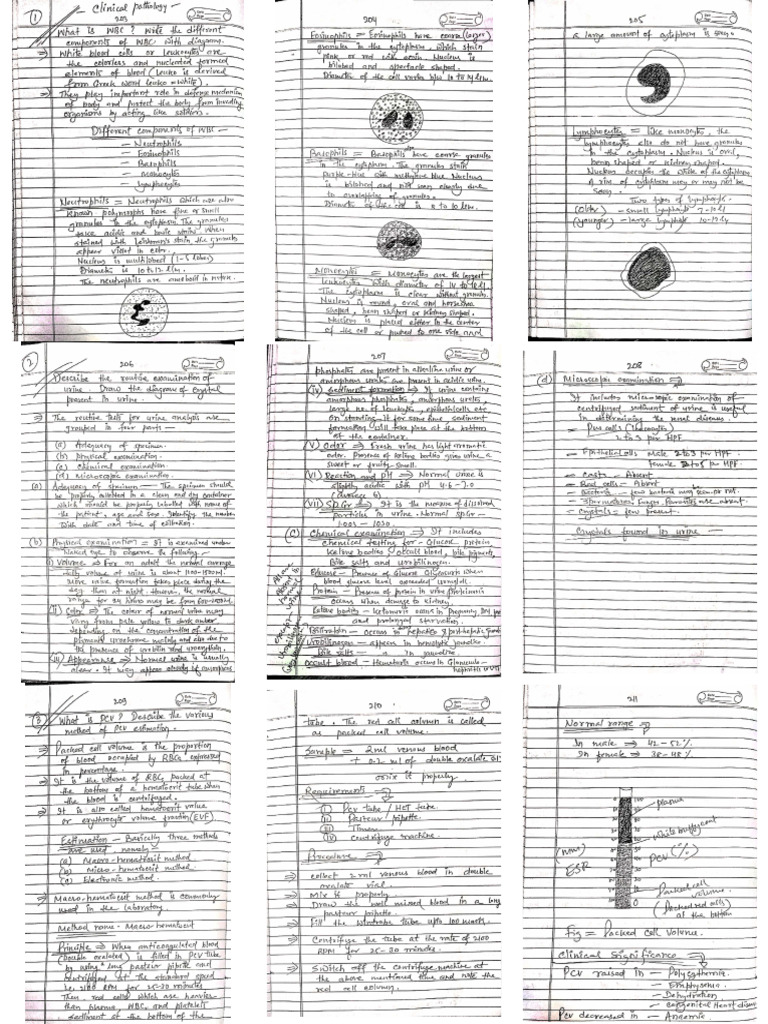 ① - Clinical pathology -
203
What is WBC? Write the different
components of WBC with diagram.
⇒ White blood cells or leukocytes are
the colorless and nucleated formed
elements of blood (Leuko is derived
from Greek word leuko = white).
⇒ They play important role in defense mechanism
of body and protect the body from invading
organisms by acting like soldiers.
Different components of WBC -
- Neutrophils
- Eosinophils
- Basophils
- monocytes
- lymphocytes
Neutrophils = Neutrophils which are also
known polymorphs have fine or small
granules in the cytoplasm. The granules
take acidic and basic stains when
stained with Leishman's stain the granules
appear violet in color.
Nucleus is multilobed (1-5 lobes)
Diameter is 10 to 12 um.
The neutrophils are amoeboid in nature.
204
Eosinophils = Eosinophils have coarse (larger)
granules in the cytoplasm, which stain
pink or red with eosin. Nucleus is
bilobed and spectacle shaped.
Diameter of the cell varies b/w 10 to 14 um.
Basophils = Basophils have coarse granules
in the cytoplasm. The granules stain
purple-blue with methylene blue. Nucleus
is bilobed and not seen clearly due
to overlapping of granules.
Diameter of is 8 to 10 um.
Monocytes = Monocytes are the largest
leukocytes with diameter of 14 to 18
The cytoplasm is clear without granules.
Nucleus is round, oval and horseshoe
shaped, bean shaped or kidney shaped.
Nucleus is placed either in the center
of the cell or pushed to one side and
205
a large amount of cytoplasm is seen.
Lymphocytes = Like monocytes, the
lymphocytes also do not have granules
in the cytoplasm. Nucleus is oval,
bean shaped or kidney shaped.
Nucleus occupies the whole of the cytoplasm
A rim of cytoplasm may or may not be
seen.
Two types of lymphocyte
(older) - small lymphocyte 7-10
(younger) - large lymphocyte 10-14
② 206
Describe the routine examination of
urine. Draw the diagram of crystal
present in urine.
⇒ The routine tests for urine analysis are
grouped in four parts -
(a) Adequacy of specimen.
(b) physical examination.
(c) chemical examination.
(d) Microscopic examination.
(a) Adequacy of specimen - The specimen should
be properly collected in a clean and dry container
which should be properly labelled with name of
the patient, age and sex, identify the number
with date and time of collection.
(b) Physical examination = It is examined under
naked eye to observe the following -
(i) Volume ⇒ For an adult the normal average
daily volume of urine is about 1500ml.
more urine formation takes place during the
day than at night. However, the normal
range for 24 hours may be from 600-2000ml.
(ii) Color ⇒ The colour of normal urine may
vary from pale yellow to dark amber
depending on the concentration of the
pigments urochrome mainly and also due to
the presence of urobilin and uroerythrin.
(iii) Appearance ⇒ Normal urine is usually
clear. It may appear cloudy if amorphous
207
phosphates are present in alkaline urine or
amorphous urates are present in acidic urine.
(iv) Sediment formation ⇒ If urine contains
amorphous phosphates, amorphous urates,
large no. of leukocytes, epithelial cells etc
on standing it for some time sediment
formation will take place at the bottom
of the container.
(v) Odor ⇒ Fresh urine has light aromatic
odor. Presence of ketone bodies gives urine a
sweet or fruity smell.
(vi) Reaction and pH ⇒ Normal urine is
slightly acidic with pH 4.6-7.0
(average 6)
(vii) SP.Gr ⇒ It is the measure of dissolved
particles in urine. Normal SP.Gr-
1.003 - 1030
(c) Chemical examination ⇒ It includes
chemical testing for - Glucose, protein
ketone bodies, occult blood, bile pigments,
Bile salts and urobilinogen.
Glucose - Presence of Glucose Glycosuria when
blood glucose level exceeded
Protein - Presence of protein in urine proteinuria
occurs when damage to kidney.
Ketone bodies - ketonuria occurs in Pregnancy, DM
and prolonged starvation.
Bilirubin - occurs in hepatic & post-hepatic
Urobilinogen - appears in hemolytic jaundice.
Bile salts - in jaundice
Occult blood - Hematuria occurs in Glomerulo-
nephritis
208
(d) Microscopic examination ⇒
It includes microscopic examination of
centrifuged sediment of urine is useful
in determining the renal disease.
- Pus cells (leukocytes)
2 to 3 per HPF.
- Epithelial cells Male 2 to 3 per HPF.
female 2 to 5 per HPF
- Casts - Absent
- Red cells - Absent
- Bacteria - few bacteria may seen or not.
- Spermatozoa, fungus, parasites are absent.
- Crystals - few present.
Crystals found in urine -
③ 209
What is PCV? Describe the various
method of PCV estimation.
⇒ Packed cell volume is the proportion
of blood occupied by RBCs expressed
in percentage.
⇒ It is the volume of RBC, packed at
the bottom of a hematocrit tube when
the blood is centrifuged.
⇒ It is also called hematocrit value
or erythrocyte volume fraction (EVF).
Estimation - Basically three methods
are used, namely
(a) Macro-hematocrit method
(b) micro-hematocrit method
(c) Electronic method.
⇒ Macro-hematocrit method is commonly
used in the laboratory.
Method name - Macro hematocrit
Principle ⇒ When anticoagulated blood
(Double oxalated) is filled in PCV tube
by using long pasteur pipette and
centrifuged at the standard speed
i.e. 2100 RPM for 25-30 minutes
Then, red cells which are heavier
than plasma, WBC, and platelet
sediment at the bottom of the
210
tube. The red cell column is called
as packed cell volume.
Sample = 2ml venous blood
+ 0.2 ml of double oxalate
mix it properly.
Requirements ⇒
(i) PCV tube / HCT tube.
(ii) Pasteur pipette.
(iii) Timer
(iv) Centrifuge machine.
Procedure ⇒
⇒ collect 2ml venous blood in double
oxalate vial.
⇒ Mix it properly.
⇒ Draw the well mixed blood in a long
pasteur pipette.
⇒ Fill the Wintrobe tube upto 100 mark.
⇒ Centrifuge the tube at the rate of 2100
RPM for 25-30 minutes.
⇒ Switch off the centrifuge machine at
the above mentioned time and note the
red cell column.
211
Normal range ⇒
In male ⇒ 42-52%
In female ⇒ 36-48%
plasma
white buffycoat
(mm)
ESR
PCV (%)
Packed cell
volume.
(Packed red cells)
at the bottom
Fig = Packed cell volume.
Clinical Significance ⇒
PCV raised in - Polycythemia.
- Emphysema
- Dehydration
- congenital Heart disease
PCV decreased in - Anemia